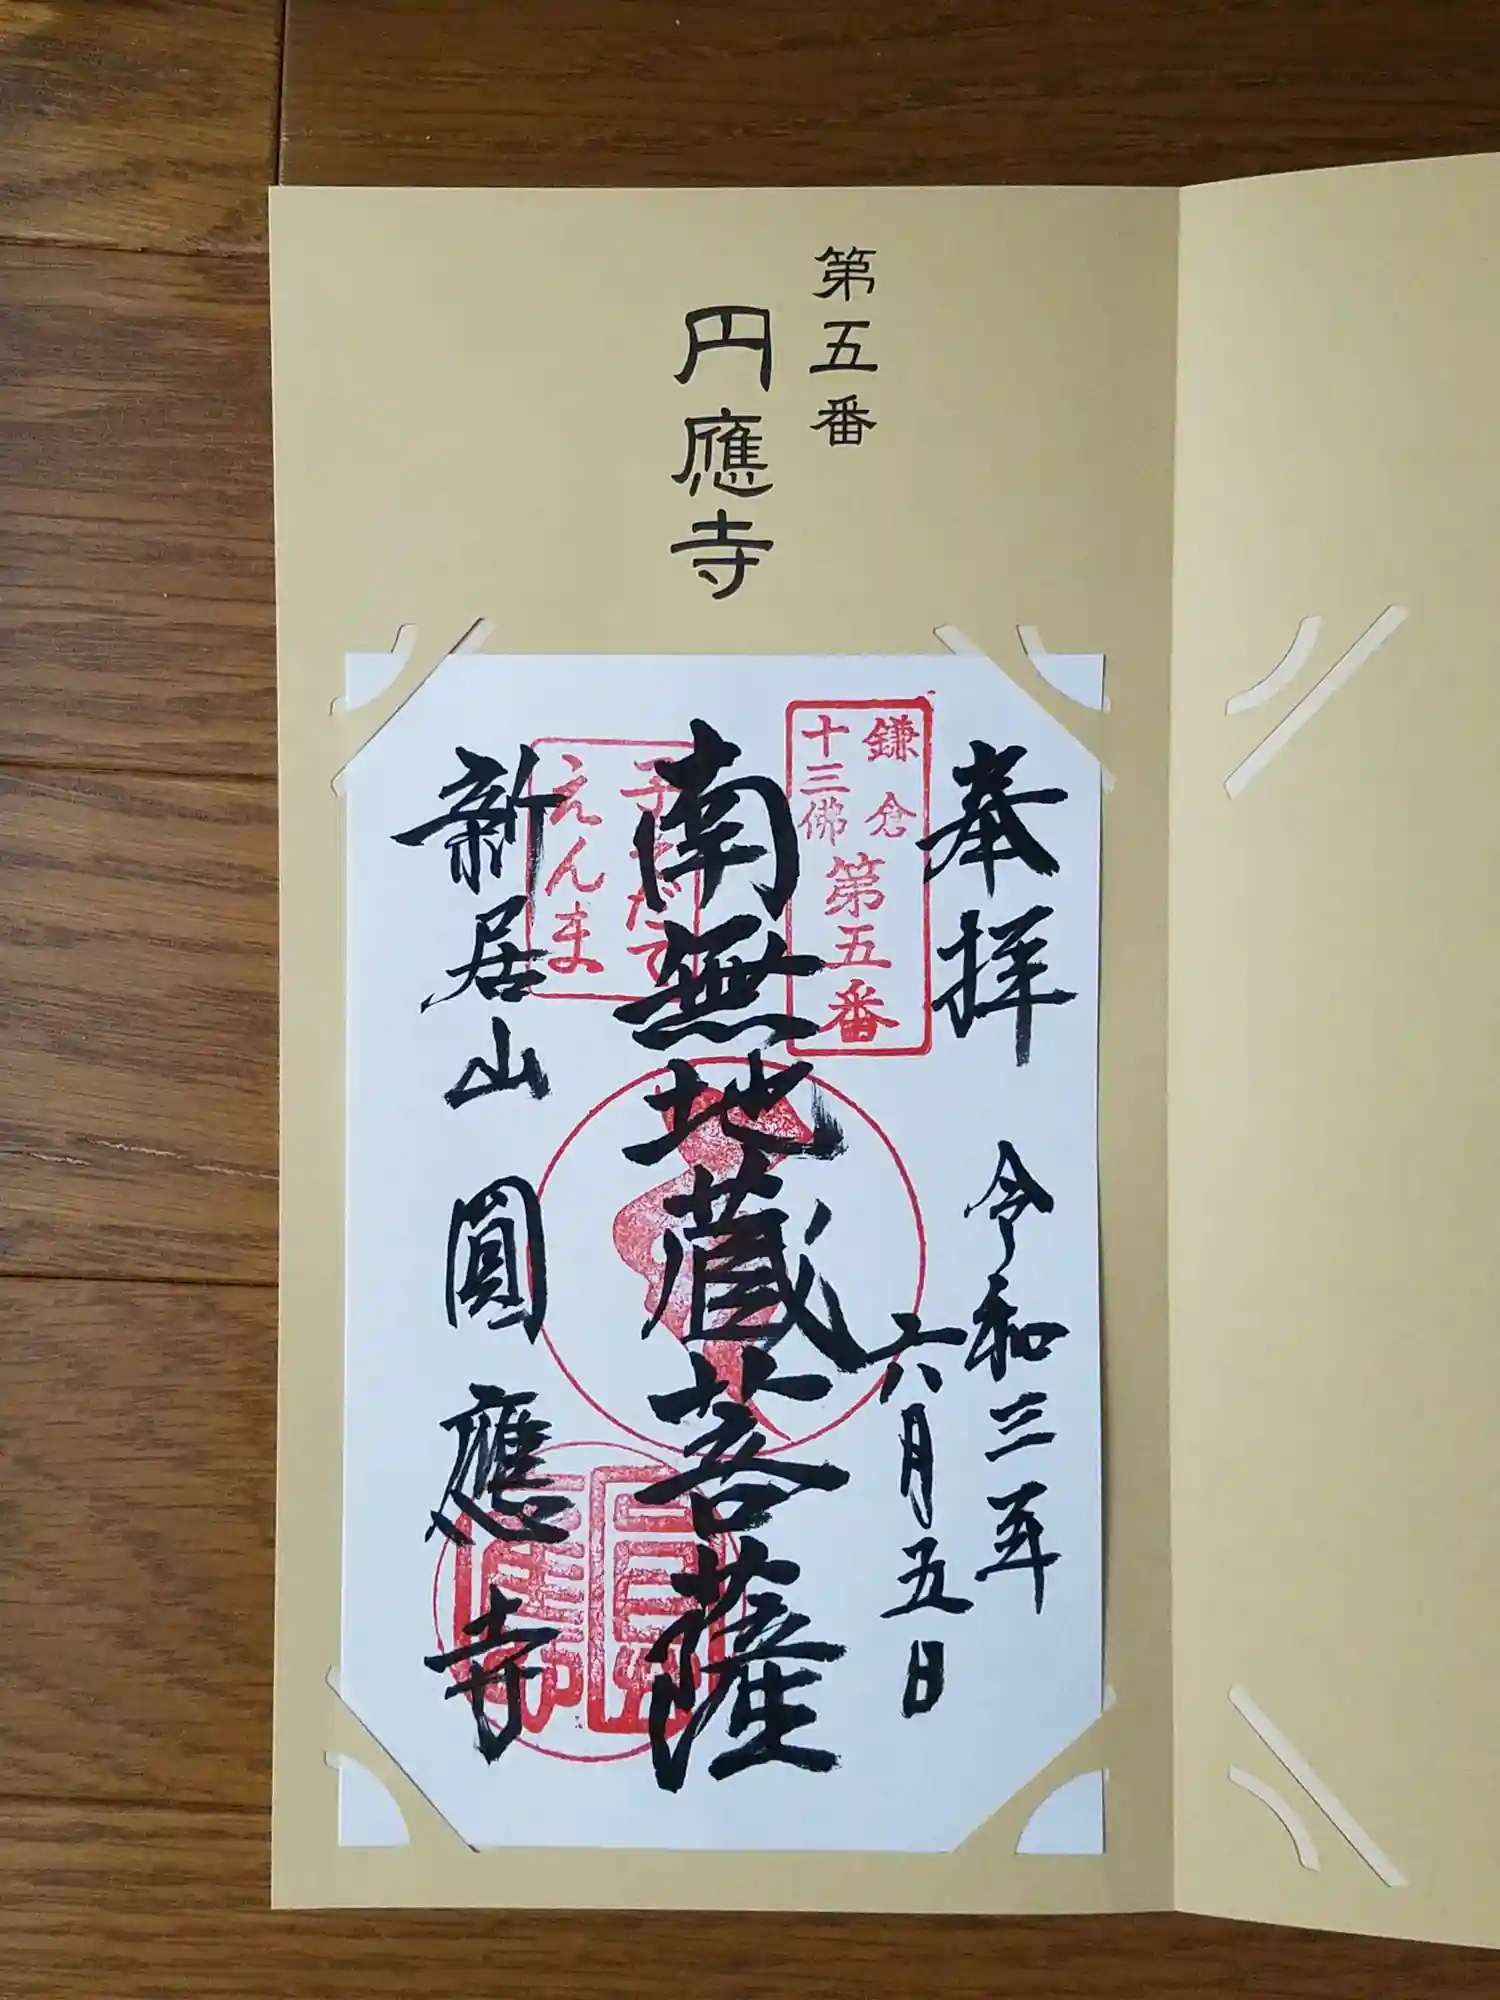 第五番
円應寺
奉拝
令和三年
六月五日
鎌倉
十三佛
第五番
南無地蔵菩薩
子そだて
えんま
新居山 圓應寺